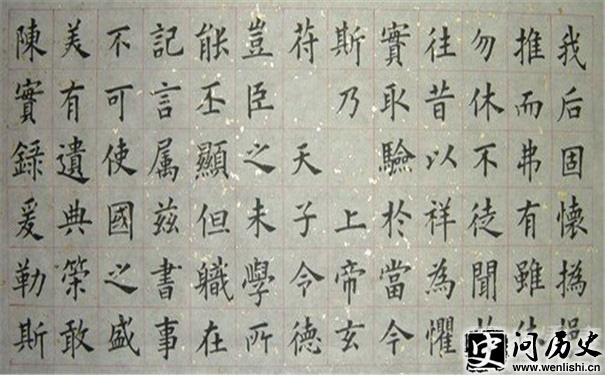 我后固懷撝挹
推而弗有雖休
勿休不徒聞於
往昔以祥為懼
實取驗於當今
斯乃 上帝玄
苻 天子令德
豈臣之末學所
能丕顯但軄在
記言属兹書事
不可使國之盛
美有遺典筞敢
陳實録爰勒斯
问历史
www.wenlishi.cn